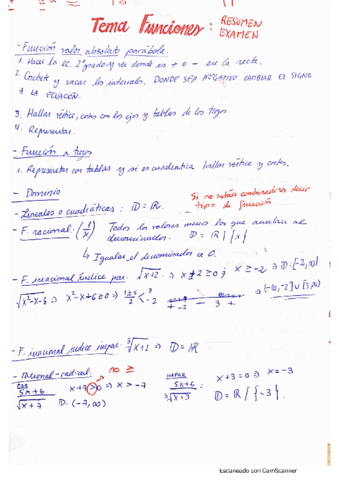 Tema Funciones: RESUMEN EXAMEN
- Función valor absoluto parábola.
1. Hacer la ec. 2º grado y ver donde es + o - en la recta.
2. Corchete y sacar los intervalos. DONDE SEA NEGATIVO CAMBIAR EL SIGNO
A LA ECUACIÓN.
3. Hallar vértice, cortes con los ejes y tablas de los trozos
4. Representar.
- Función a trozos
1. Representar con tablas y si es cuadrática hallar vértice y cortes.
- Dominio
- Lineales o cuadráticas: D = ℝ.
Si no están combinadas decir
tipo de función
- F. racional (1/x) Todos los valores menos los que anulan al
denominador. D = ℝ | {x}
↳ Igualar el denominador a 0.
- F. irracional índice par: √x+2 ⇒ x+2 ≥ 0 ; x ≥ -2 ⇒ D: [-2, ∞)
√x²-x-6 ⇒ x²-x-6 ≥ 0 ⇒ 1±5/2 < 3 -2
+ -2 - 3 +
⇒ (-∞, -2] ∪ [3, ∞)
- F. irracional índice impar: ³√x+2 ⇒ D = ℝ
- Racional-radical. no ≥
PAR
5x+6/√x+7 x+7 > 0 ⇒ x > -7
D: (-7, ∞)
IMPAR
5x+6/³√x+3 : x+3 = 0 ; x = -3
D = ℝ / {-3}
Escaneado con CamScanner